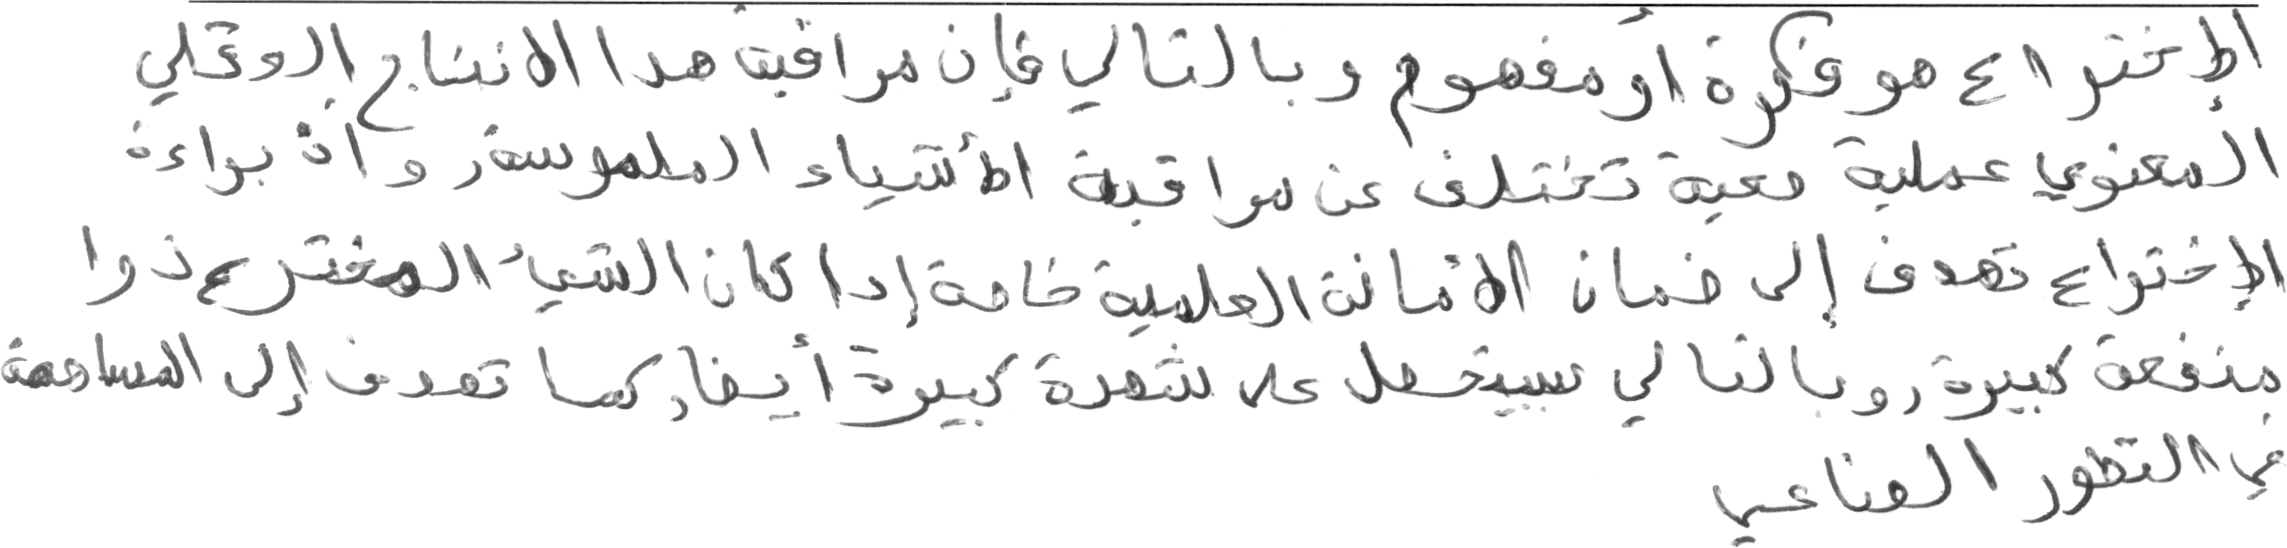 الإختراع هو فكرة أو مفهوم وبالتالي فإن مراقبة هدا الانتاج العقلي
المعنوي عملية صعبة تختلف عن مراقبة الأشياء الملموسة، وان براءة
الإختراع تهدف إلى ضمان الأمانة العلمية خاصة إدا كان الشيء المخترع ذوا
منفعة كبيرة، وبالتالي سيتحصل على شهرة كبيرة أيضا، كما تهدف إلى المساهمة
في التطور الصناعي